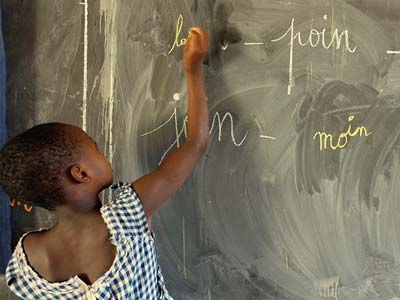 lo - poin -
join - moin